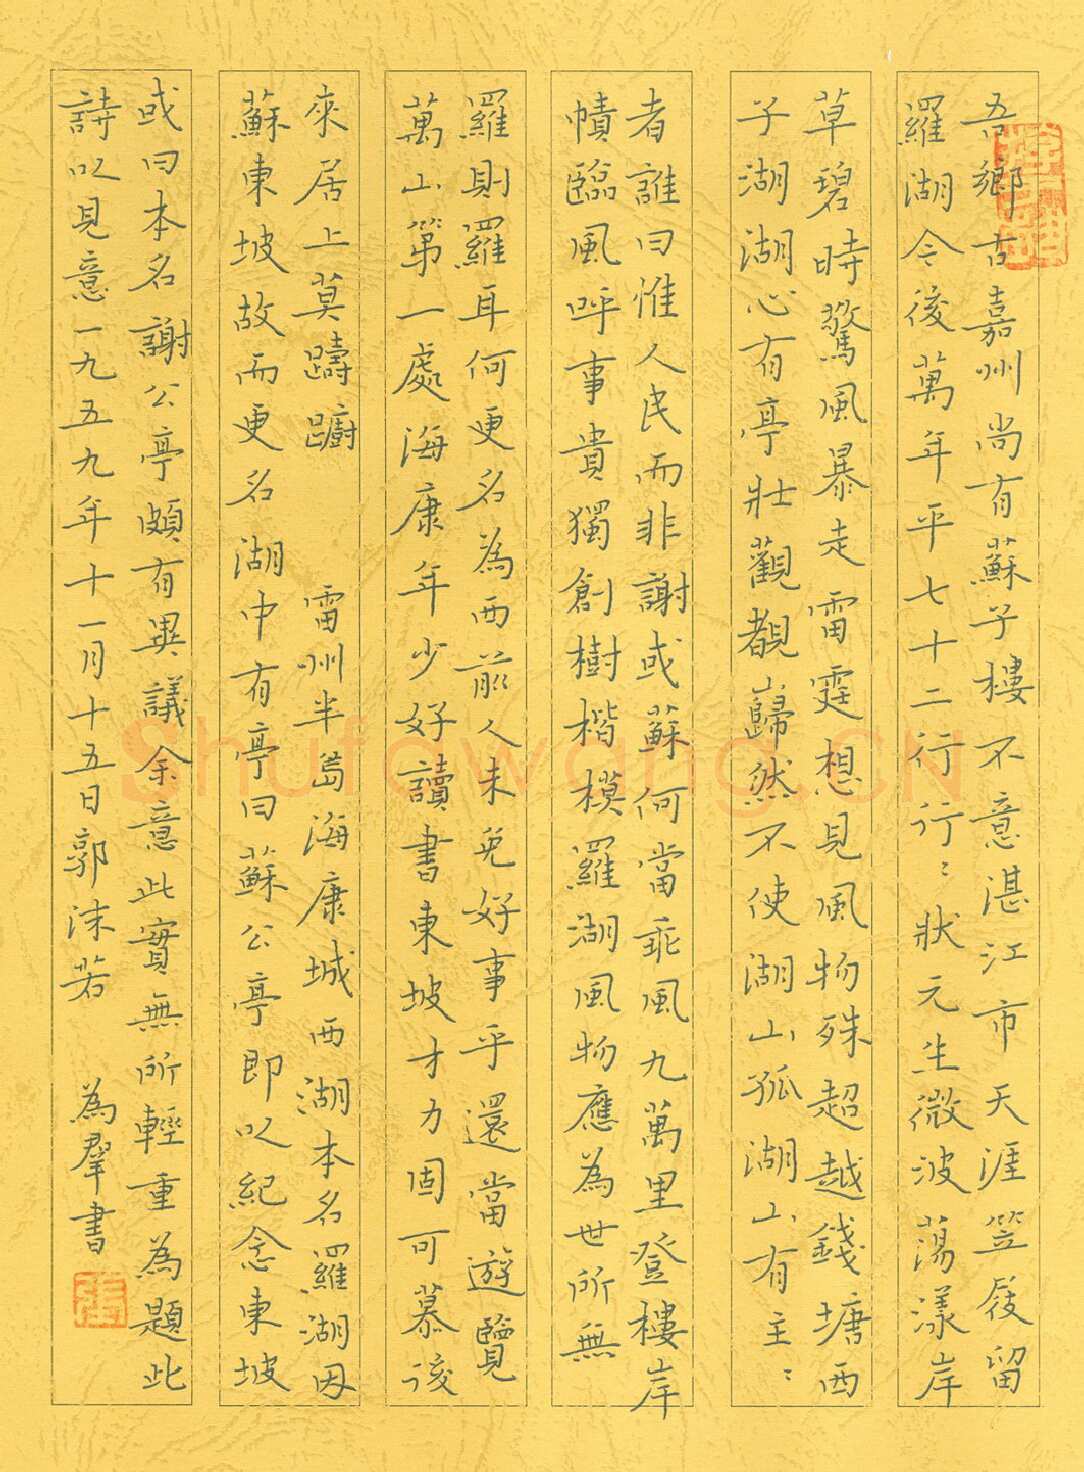 吾鄉古嘉州尚有蘇子樓不意湛江市天涯笠屐留
羅湖令後萬年平七十二行行：狀元生微波蕩漾岸
草碧時驚風暴走雷霆想見風物殊超越錢塘西
子湖湖心有亭壯觀覩巋然不使湖山孤湖山有主：
者誰曰惟人民而非謝或蘇何當乖風九萬里登樓岸
幘臨風呼事貴獨創樹楷模羅湖風物應為世所無
羅則羅耳何更名為西前人未免好事乎還當遊覽
萬山第一處海康年少好讀書東坡才力固可慕後
來居上莫躊躕　雷州半島海康城西湖本名羅湖因
蘇東坡故而更名湖中有亭曰蘇公亭即以紀念東坡
或曰本名謝公亭頗有異議余意此實無所輕重為題此
詩以見意一九五九年十一月十五日郭沫若　為群書
Shufawang.CN